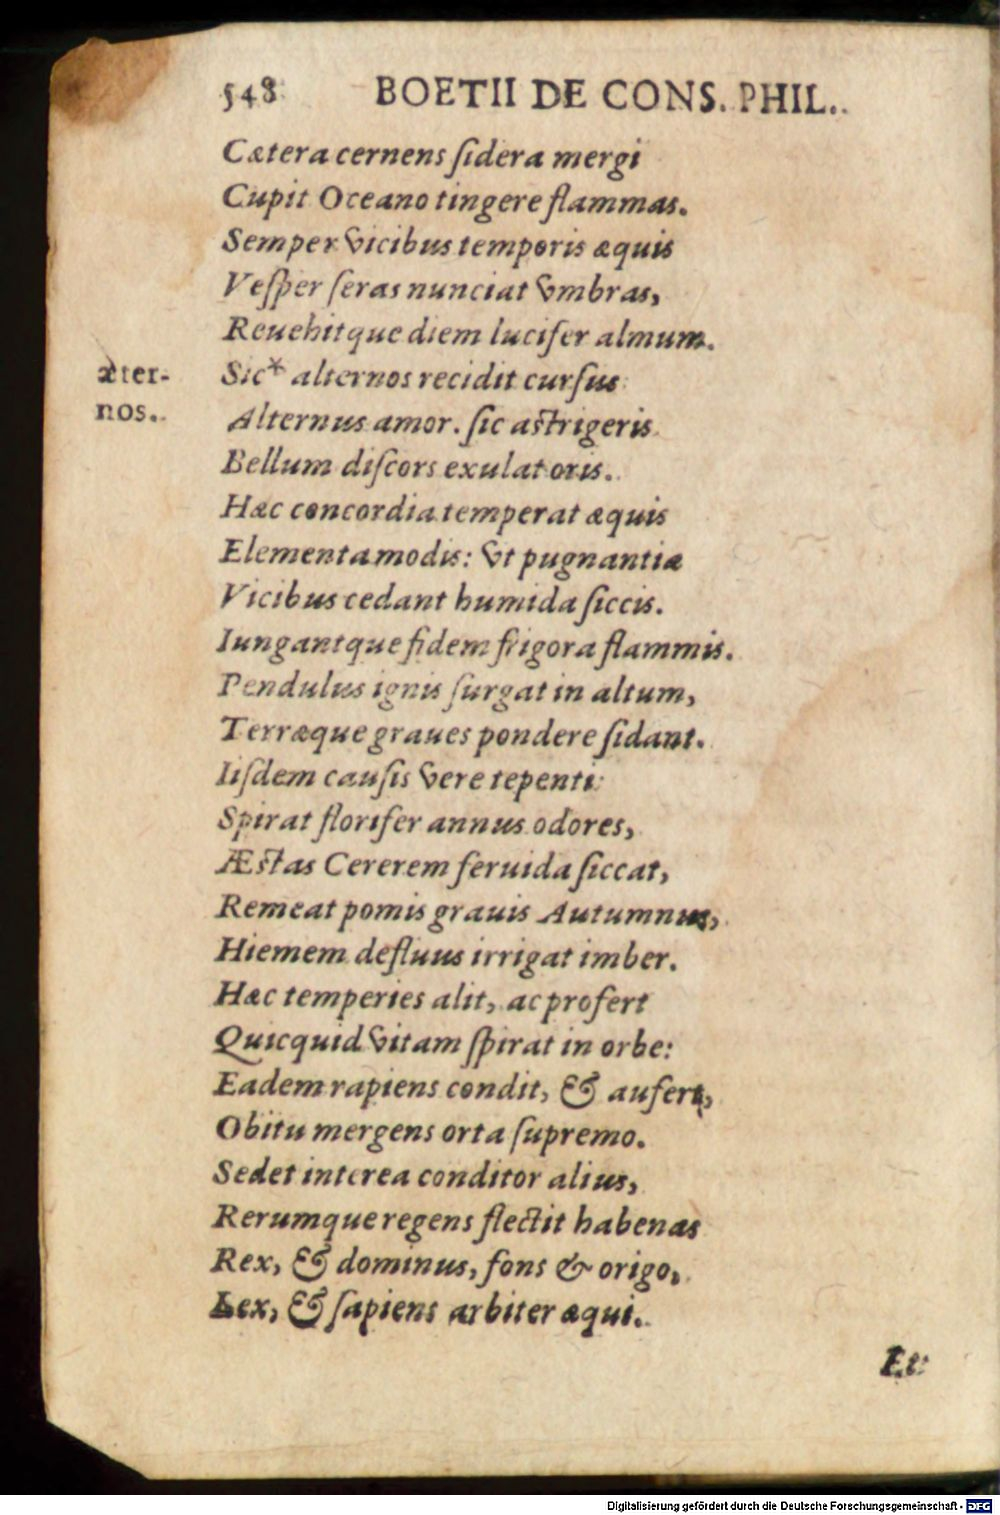 548 BOETII DE CONS. PHIL..
Cætera cernens ſidera mergi
Cupit Oceano tingere flammas.
Semper vicibus temporis æquis
Veſper ſeras nunciat vmbras,
Reuehitque diem lucifer almum.
æter-
nos..
Sic* alternos recidit curſus
Alternus amor. ſic aſtrigeris
Bellum diſcors exulat oris.
Hæc concordia temperat æquis
Elementa modis: vt pugnantia
Vicibus cedant humida ſiccis.
Iungantque fidem frigora flammis.
Pendulus ignis ſurgat in altum,
Terræque graues pondere ſidant.
Iiſdem cauſis vere tepenti
Spirat florifer annus odores,
Æſtas Cererem feruida ſiccat,
Remeat pomis grauis Autumnus,
Hiemem defluus irrigat imber.
Hæc temperies alit, ac profert
Quicquid vitam ſpirat in orbe:
Eadem rapiens condit, & aufert,
Obitu mergens orta ſupremo.
Sedet interea conditor alius,
Rerumque regens flectit habenas
Rex, & dominus, fons & origo,
Lex, & ſapiens arbiter æqui.
Et
Digitalisierung gefördert durch die Deutsche Forschungsgemeinschaft - DFG